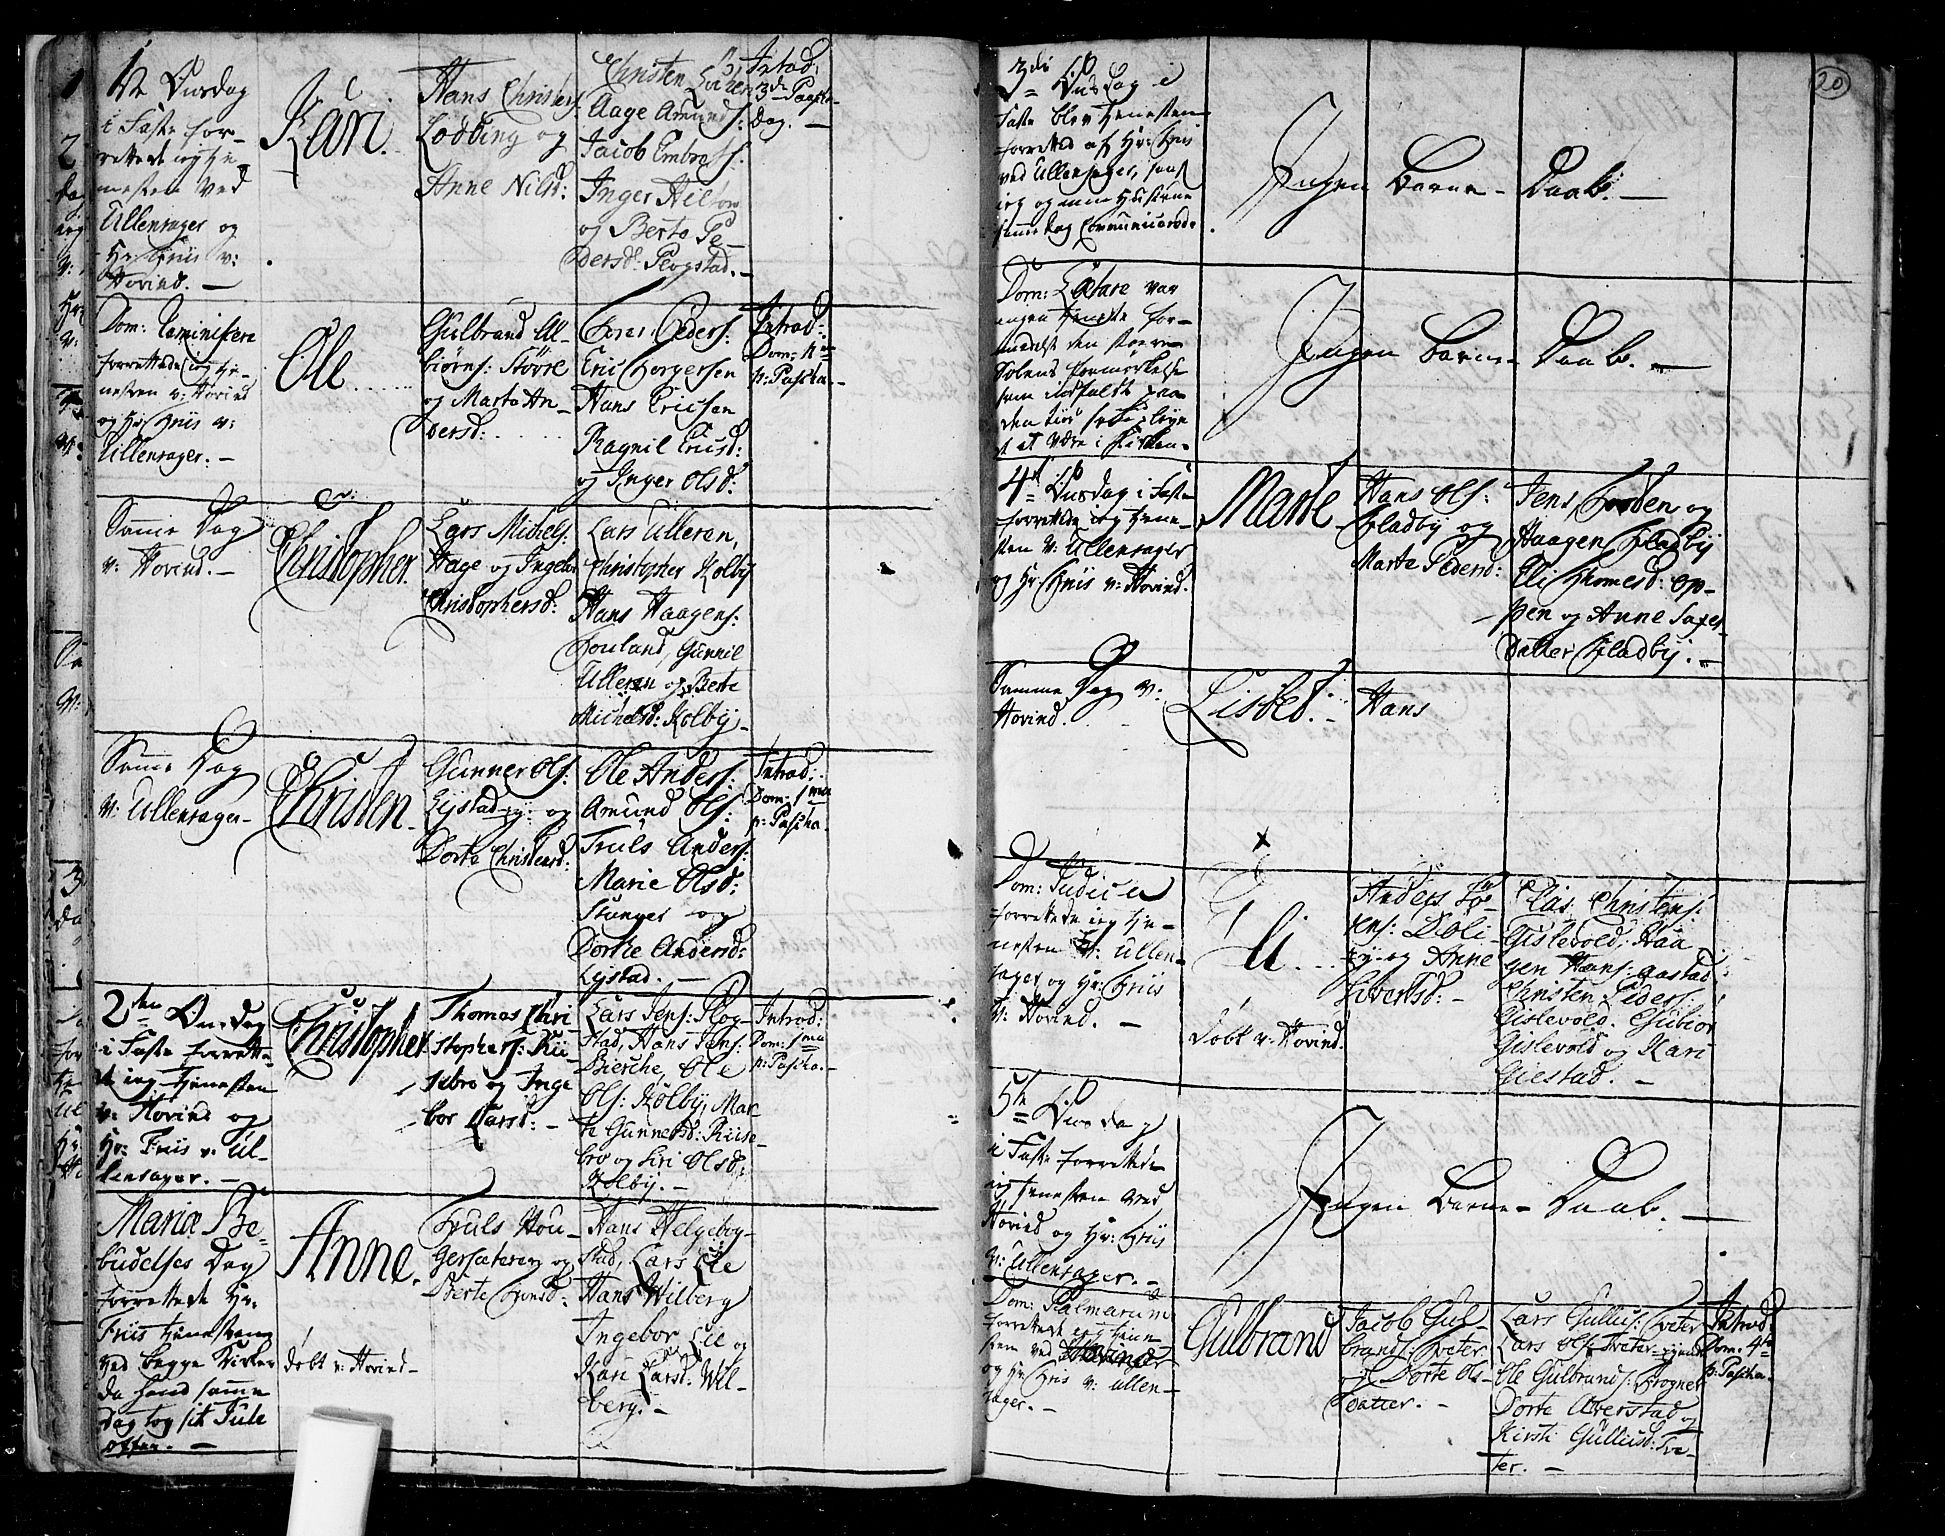 1te Onsdag
i Faste for-
rettede ieg Tie-
nesten ved
Ullensager og
Hr. Friis v:
Hovind. —
Kari.
Hans Christens:
Lodding og
Anne Nilsd:
Christen
Aage Amunds:
Jacob Embrets:
Inger
og Berte Pe-
dersd: Rogstad. —
Introd:
3de Paaske-
dag. —
Dom: Reminiscere
forrettede ieg Tie-
nesten v: Hovind
og Hr. Friis v:
Ullensager. —
Ole
Gulbrand Al-
biørns: Støvre
og Marte An-
dersd:
Peders:
Eric Torgersen
Hans Ericsen
Ragnil Ericsd:
og Inger Olsd:
Introd:
Dom:
p: Pascha. —
Samme Dag
v: Hovind. —
Christopher.
Lars Michels:
Hage og Ingebor
Christophersd:
Lars Ulleren,
Christopher Kolby
Hans Haagens:
Gunnil
Ulleren og Berte
Michelsd: Kolby. —
Samme Dag
v: Ullensager —
Christen.
Gunner Ols:
Lystad og
Dorte Christensd:
Ole Anders:
Amund Ols:
Truls Anders:
Marie Olsd:
Stunger og
Dorthe Andersd:
Lystad. —
Introd:
Dom: 1ma
p: Pascha.
2den Onsdag
i Faste forrette-
de ieg Tienesten
v: Hovind og
Hr: Friis v: Ul-
lensager. —
Christopher
Thomas Chri-
stophers: Rii-
sebro og Inge
bor Larsd: —
Lars Jens: Rog-
stad, Hans Jens:
Bierche, Ole
Ols: Kolby, Mar-
te Gunnersd: Riise-
bro og Siri Olsd:
Kolby. —
Introd:
Dom: 1ma
p: Pascha. —
Mariæ Be-
budelses Dag
forrettede Hr.
Friis Tienesten
ved begge Kirker
da hand samme
Dag tog sit Jule
offer. —
Anne.
døbt v: Hovind —
Truls Hou-
gersæteren og
Berte
Hans Helgebog-
stad, Lars Lie
Hans Wilberg
Ingebor Lie og
Kari Larsd: Wil-
berg. —
20
3die Onsdag i
Faste blev Tienesten
forretted af Hr: Friis
ved Ullensager,
ieg og min Hustrue
samme Dag Communicerede.
Ingen Barne-Daab. —
Dom: Lætare var
ingen Tieneste for-
medelst den store
Solens Formørkelse
som indfaldt
den Tiid
at være i Kirken.
Ingen Barne-Daab. —
4de Onsdag i Faste
forrettede ieg Tiene-
sten v: Ullensager
og Hr: Friis v: Hovind.
Marte
Hans Ols:
Fladby og
Marte Pedersd:
Jens og
Haagen Fladby
Eli Thomesd: Op-
pen og Anne Saxes-
datter Fladby. —
Samme Dag v:
Hovind.
Lisbet. —
Hans
Dom: Judica
forrettede ieg Tie-
nesten v: Ullen-
sager og Hr: Friis
v: Hovind. —
x
Eli
Døbt v: Hovind.
Anders
Doli
og Anne
Siversd: —
Clas Christens:
Gislevold, Haa
gen Hans: Aastad
Christen Peders:
Gislevold. Gubior
Gislevold og Kari
Giestad. —
5te Onsdag
i Faste forrettede
ieg Tienesten ved
Hovind og Hr: Friis
v: Ullensager. —
Ingen Barne-Daab. —
Dom: Palmarum
forrettede ieg Tiene-
sten ved Hovind
og Hr Friis v: Ullen-
sager. —
Gulbrand
Jacob Gul-
brands: Tveter
og Dorte Ols-
datter. —
Lars Gullius: Tveter
Lars Ols: Tveter
Ole Gulbrands: Frogner
Dorte Algerstad og
Kirsti Gulliusd: Tve-
ter. —
Introd.
Dom: 4ta
p: Pascha.